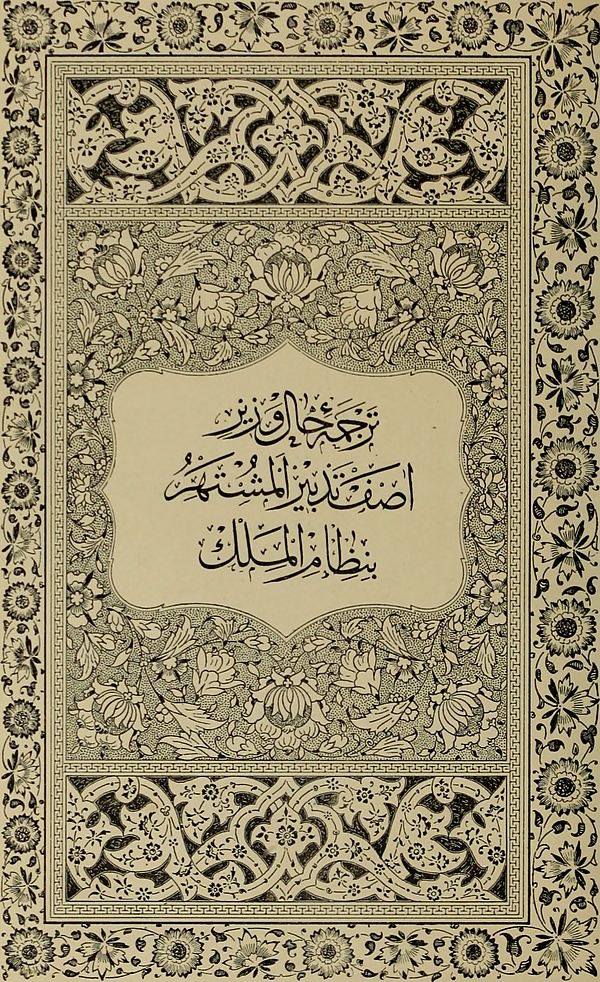 ترجمهٔ حال وزیر
اصف تدبیر المشتهر
بنظام الملك